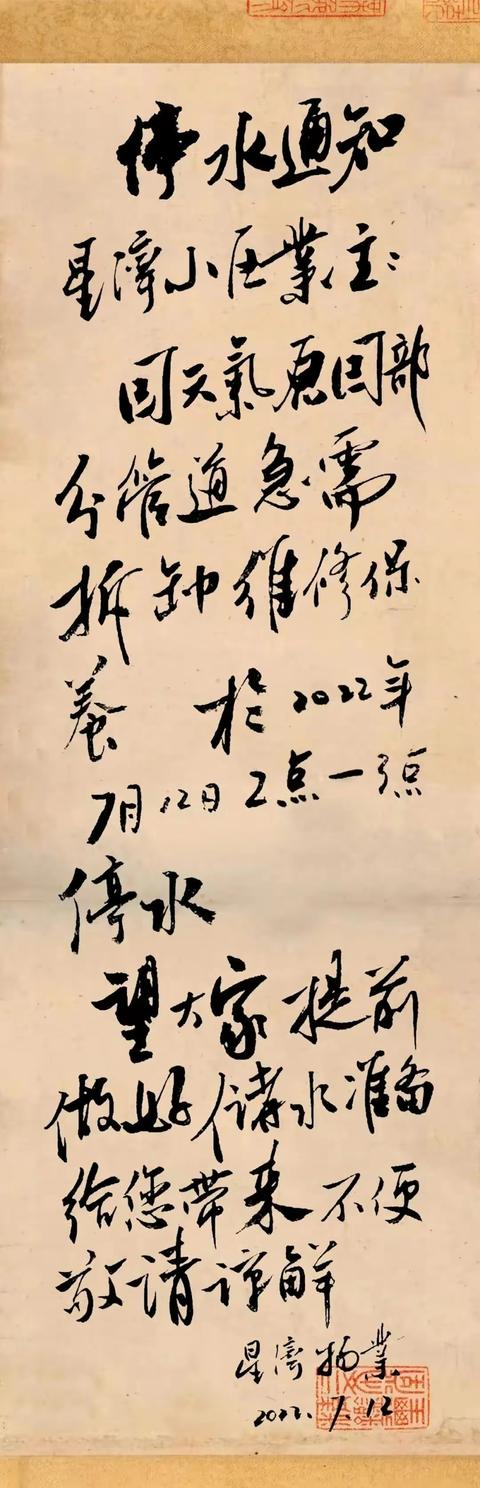 停水通知
星濟小区業主:
因天氣原因部
分管道急需
拆卸維修保
養 於2022年
7月12日2点一3点
停水
望大家提前
做好儲水准备
给您带来不便
敬请諒解
星濟物業
2022.7.12